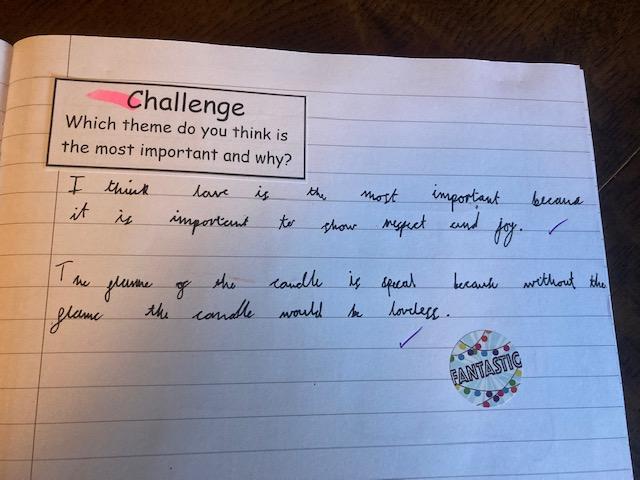 Challenge
Which theme do you think is
the most important and why?
I think love is the most important because
it is important to show respect and joy.
The flame of the candle is special because without the
flame the candle would be loveless.
FANTASTIC